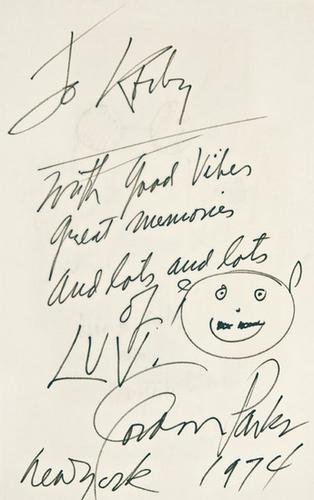 To Kirby
With Good Vibes
great memories
and lots and lots
of
LUV.
Gordon Parks
new york 1974